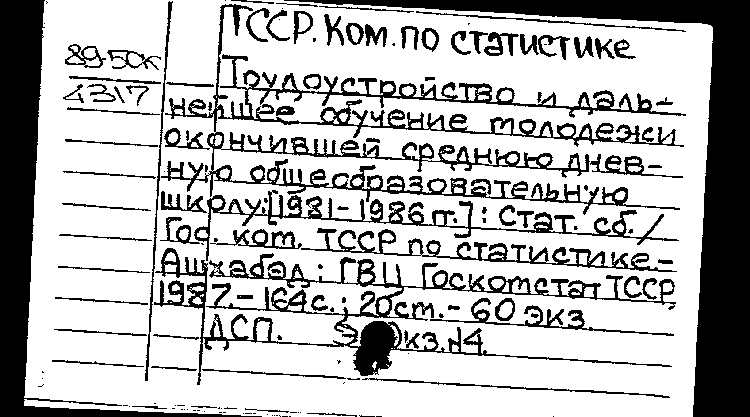 ТССР. Ком. по статистике
89-5ОК
4317
Трудоустройство и даль-
нейшее обучение молодежи
окончившей среднюю днев-
ную общеобразовательную
школу: [1981-1986 гг.] : Стат. сб. /
Гос. ком. ТССР по статистике.-
Ашхабад : ГВЦ Госкомстат ТССР,
1987.- 164 с. ; 20 ст.- 60 экз.
ДСП. Экз. №4.